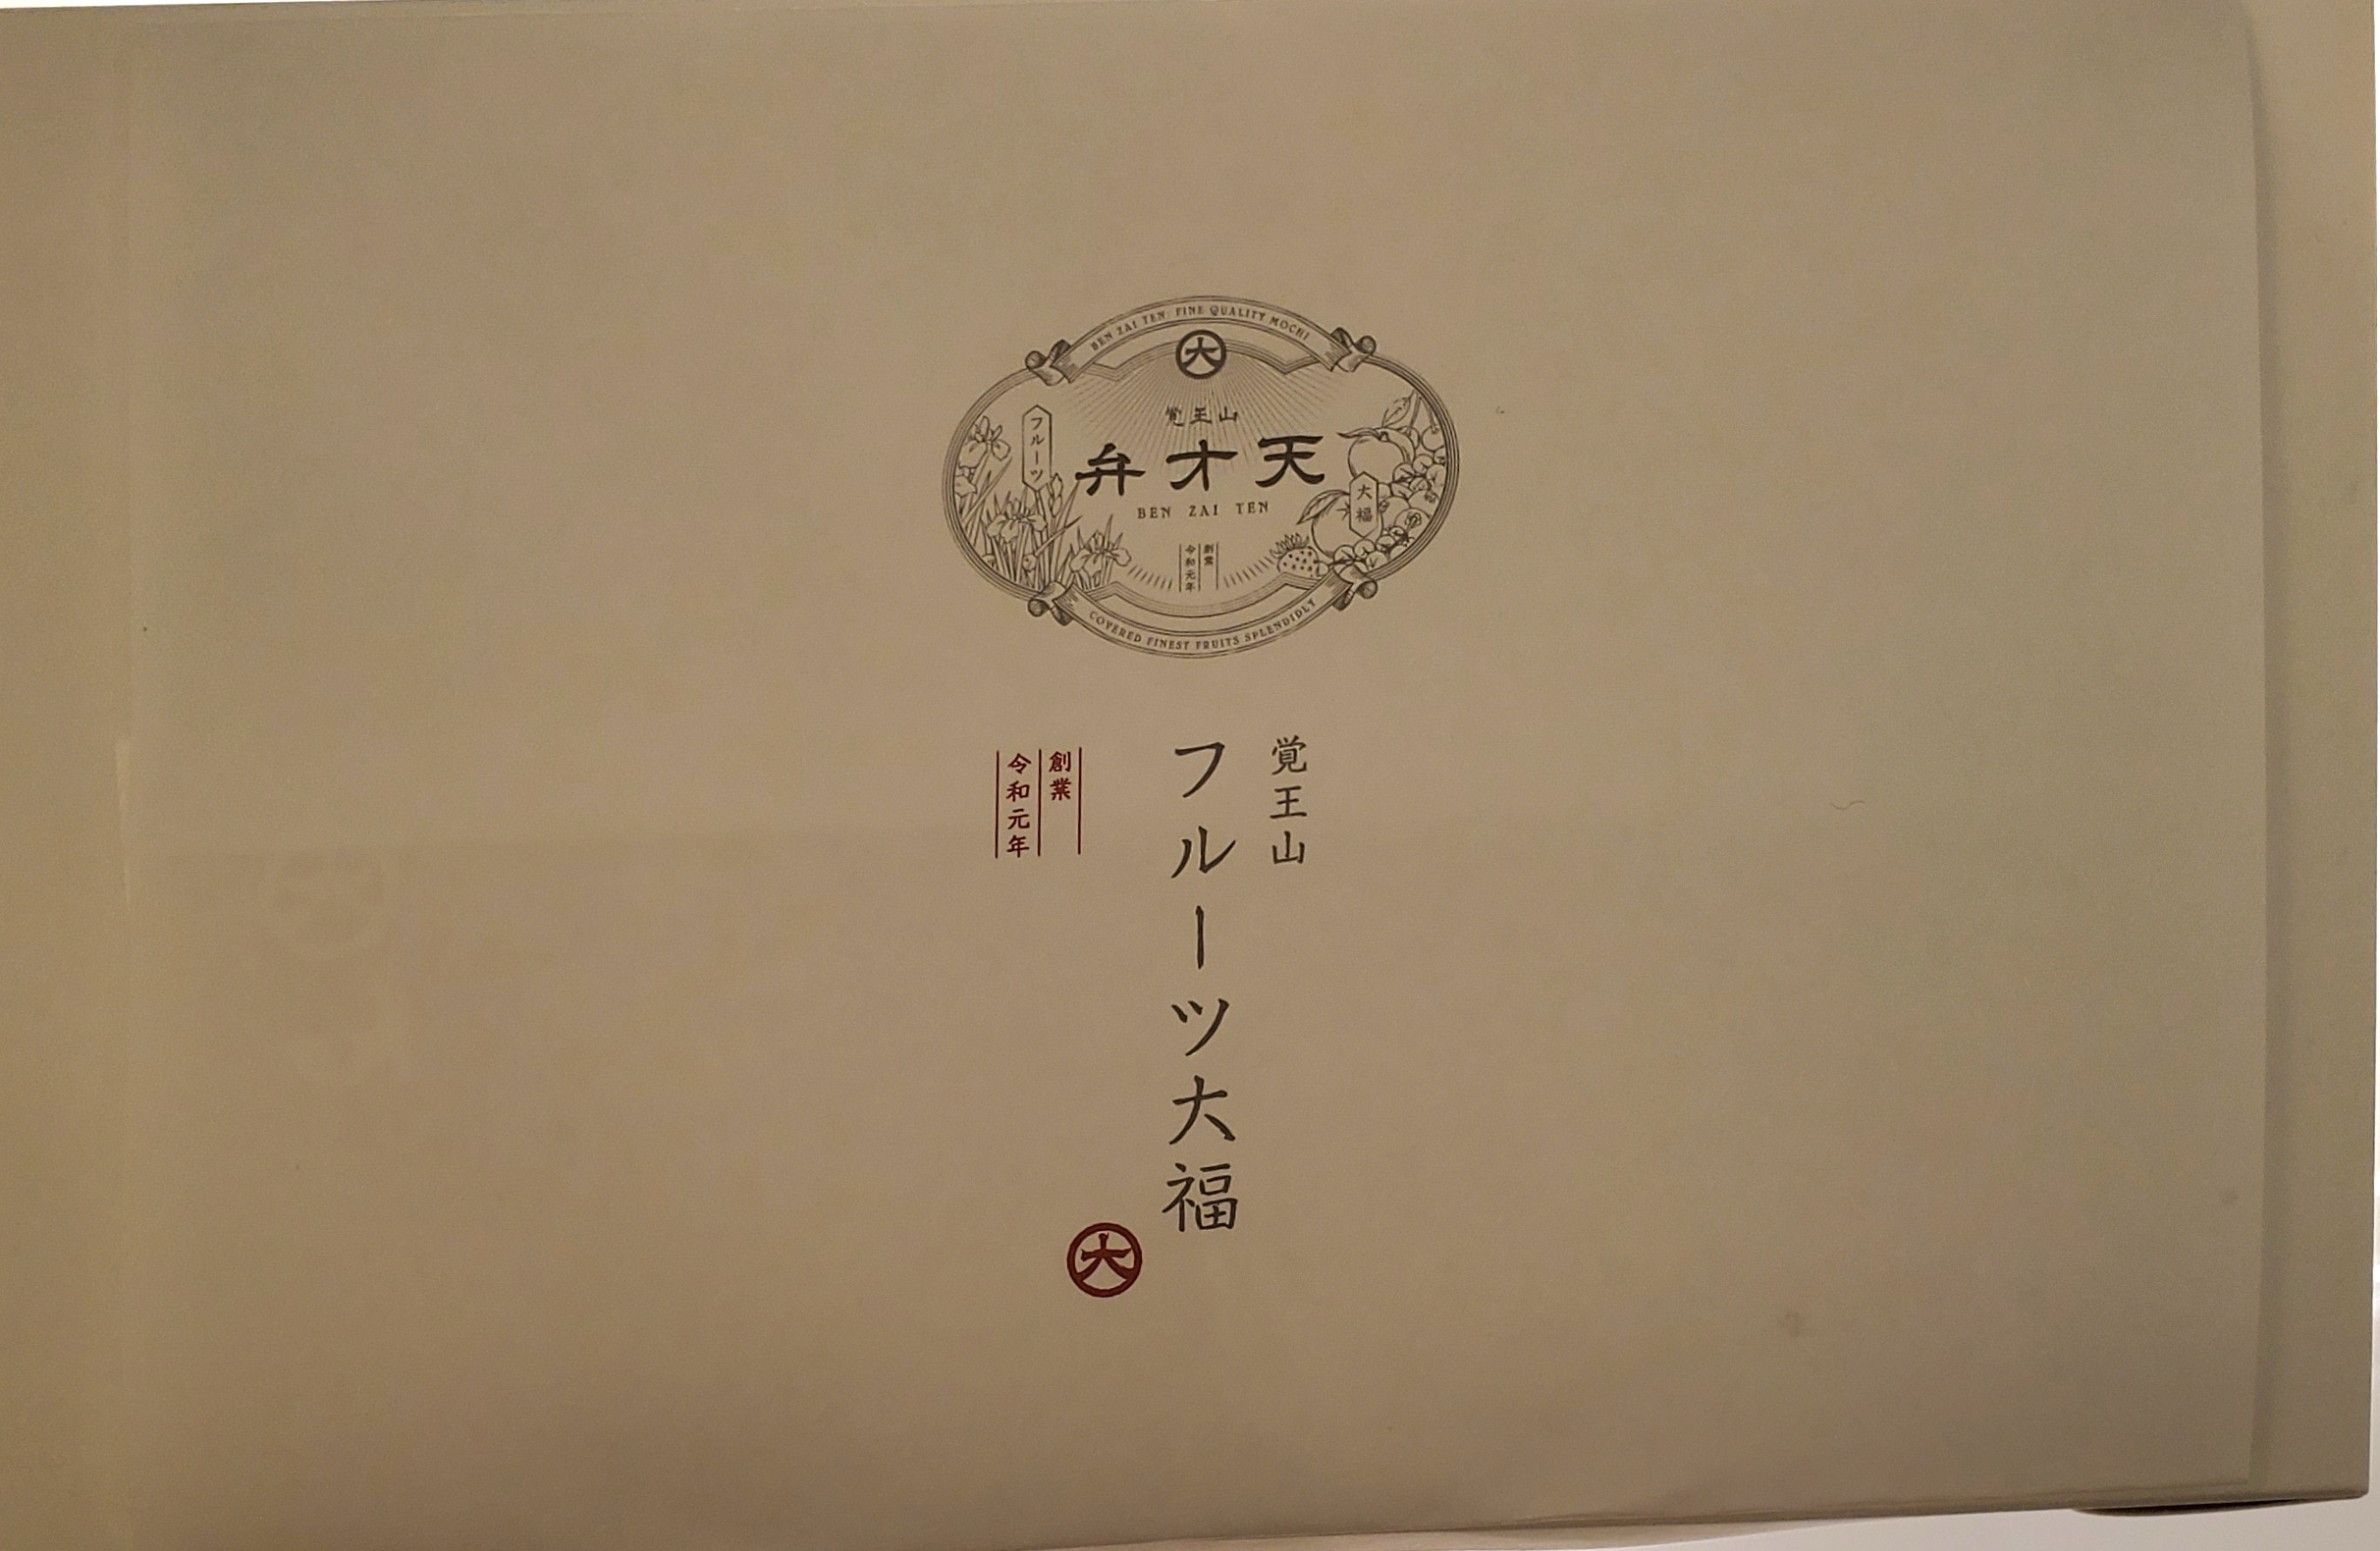 BEN ZAI TEN FINE QUALITY MOCHI
大
覚王山
フルーツ
弁才天
大福
BEN ZAI TEN
創業
令和元年
COVERED FINEST FRUITS SPLENDIDLY
覚王山
フルーツ大福
創業
令和元年
大